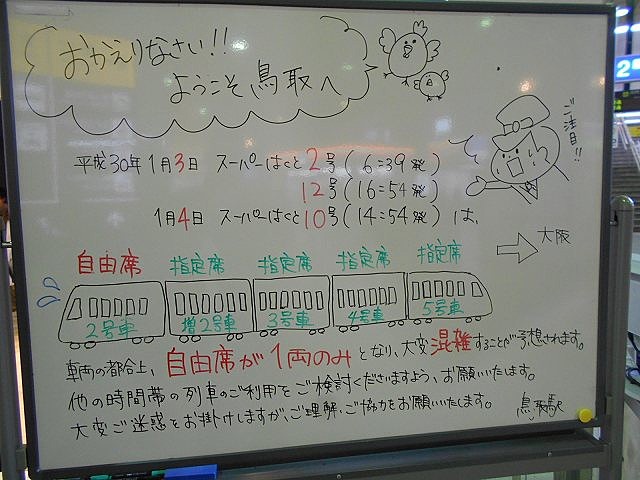 おかえりなさい!!
ようこそ鳥取へ
ご注目!!
平成30年1月3日 スーパーはくと2号(6:39発)
12号(16:54発)
1月4日 スーパーはくと10号(14:54発)は、
大阪
自由席 指定席 指定席 指定席 指定席
2号車 増2号車 3号車 4号車 5号車
車両の都合上、自由席が1両のみとなり、大変混雑することが予想されます。
他の時間帯の列車のご利用をご検討くださいますよう、お願いいたします。
大変ご迷惑をお掛けしますが、ご理解、ご協力をお願いいたします。
鳥取駅
2